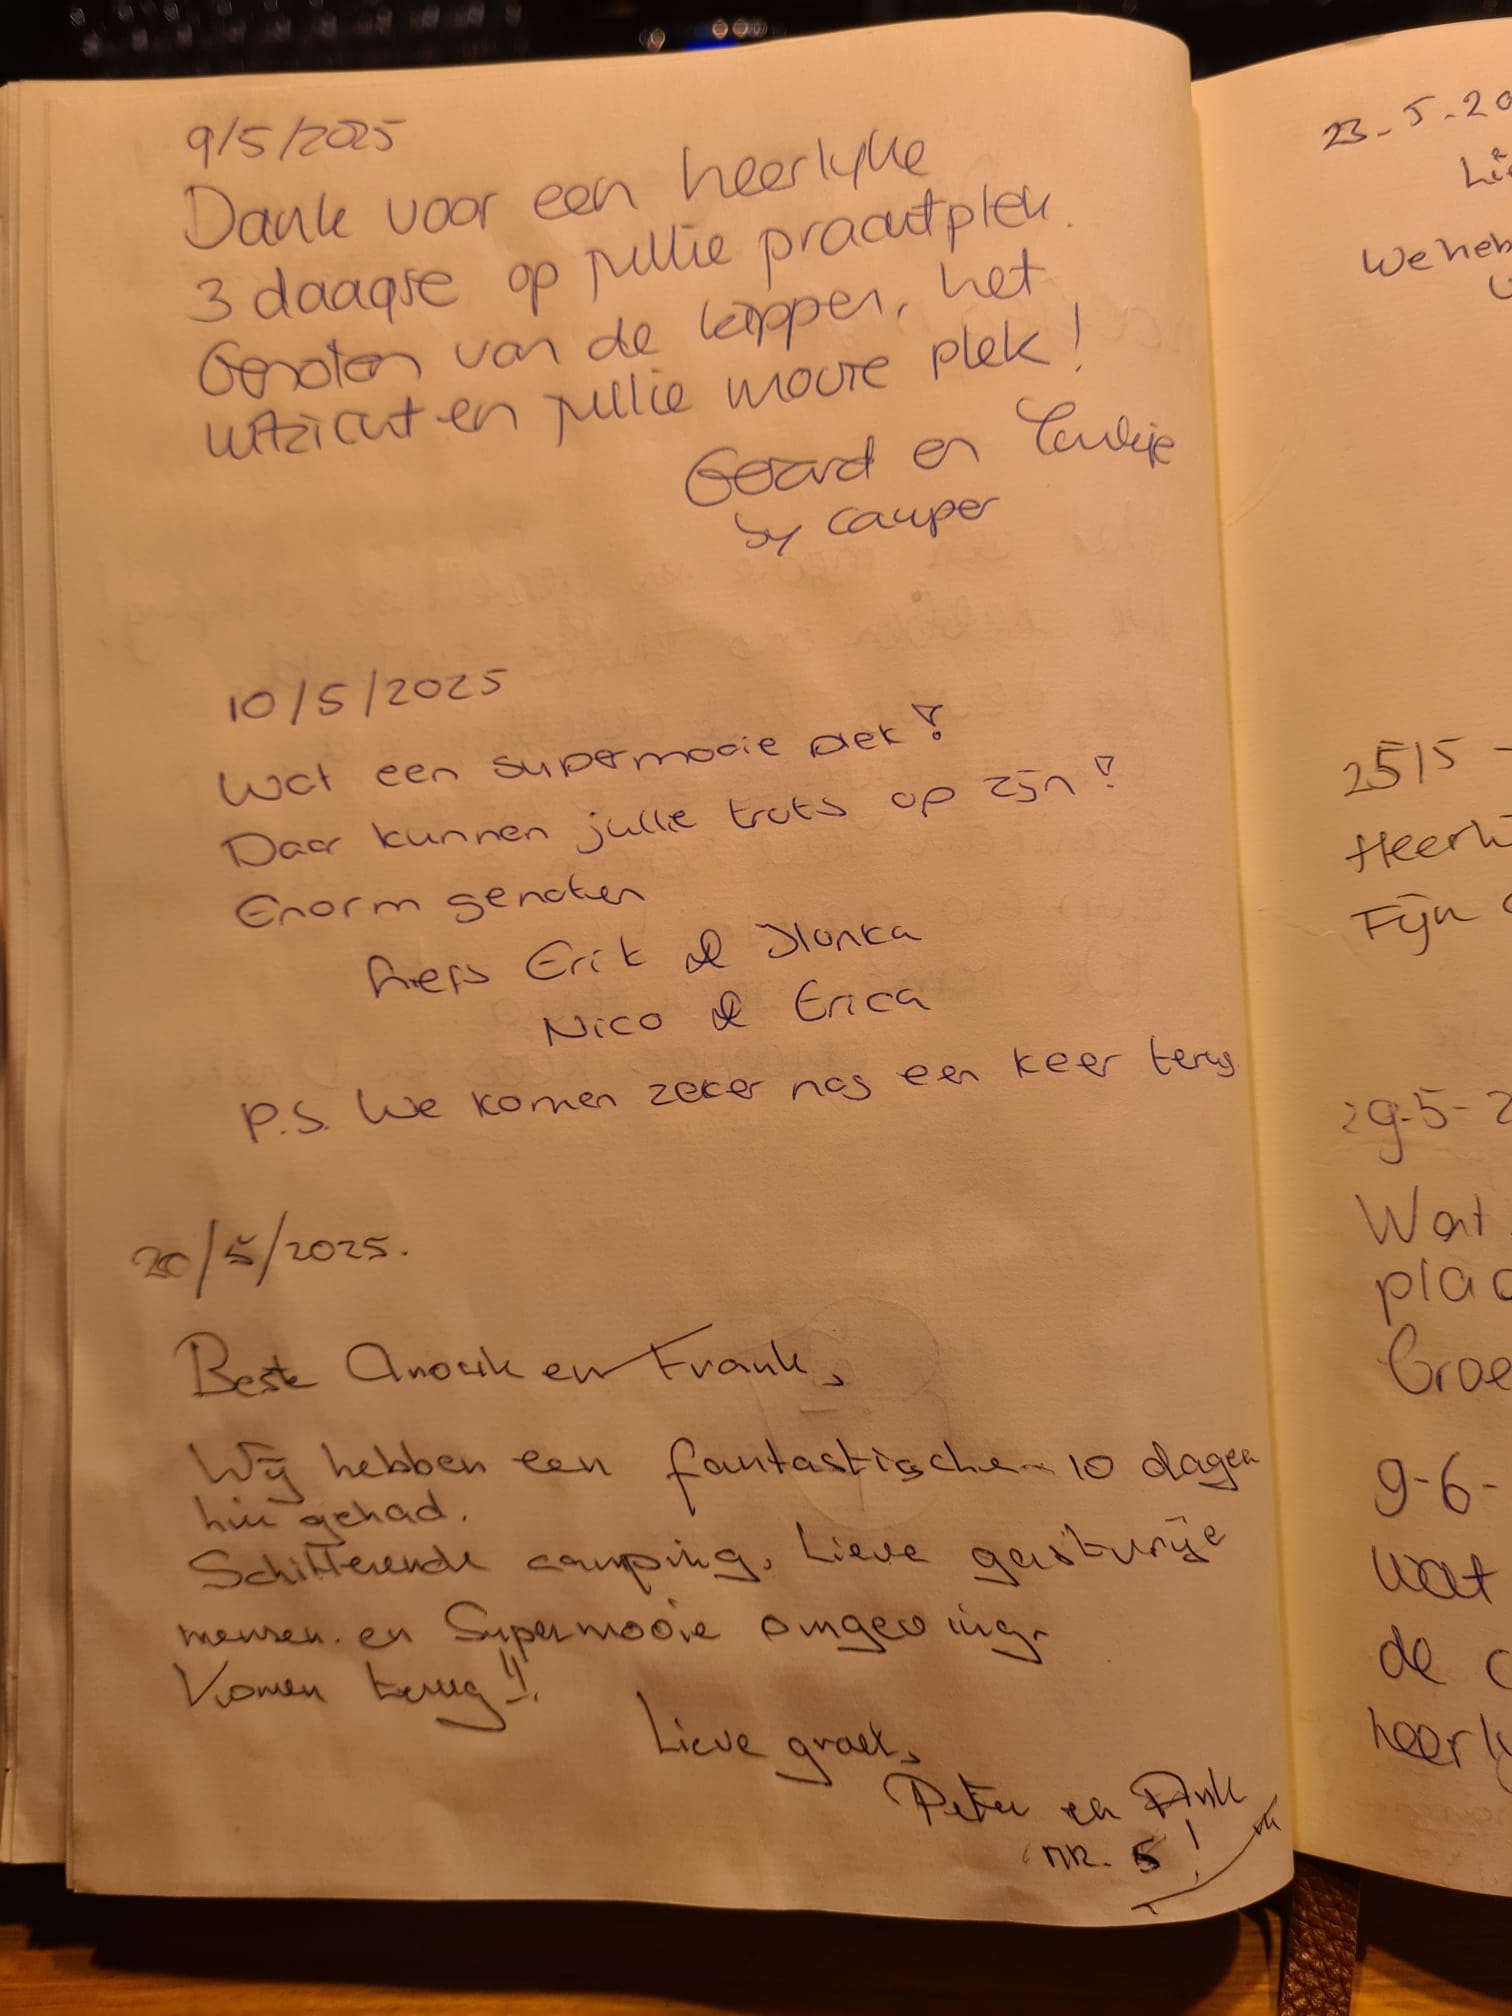 9/5/2025
Dank voor een heerlyke
3 daagse op jullie prachtplek.
Genoten van de kippen, het
uitzicht en jullie mooie plek!
Geard en
by camper
10/5/2025
Wat een supermooie plek!
Daar kunnen jullie trots op zijn!
Enorm genoten
liefs Erik & Ilonka
Nico & Erica
P.S. We komen zeker nog een keer terug.
20/5/2025.
Beste Anouk en Frank,
Wij hebben een fantastische 10 dagen
hier gehad.
Schitterende camping, Lieve gastvrije
mensen en Supermooie omgeving.
Komen terug!!
Lieve groet,
Peter en
nr. 5!
23-5-20
We heb
25/5 -
Heerli
Fijn
29-5-2
Wat
plac
Groe
9-6-
wat
de
heerly